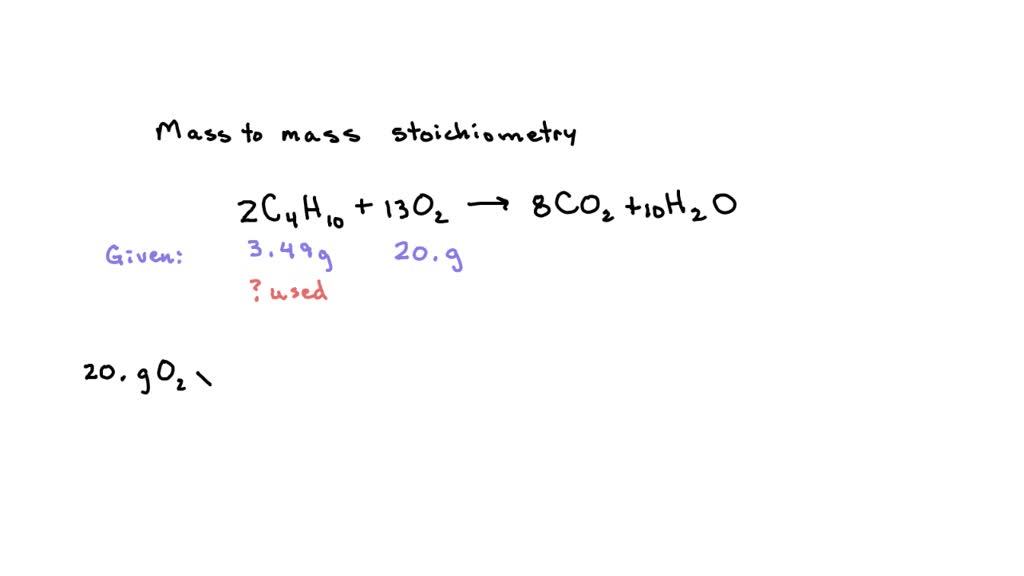 Mass to mass stoichiometry
2C₄H₁₀ + 13O₂ → 8CO₂ + 10H₂O
Given: 3.49g 20.g
? used
20.gO₂ \